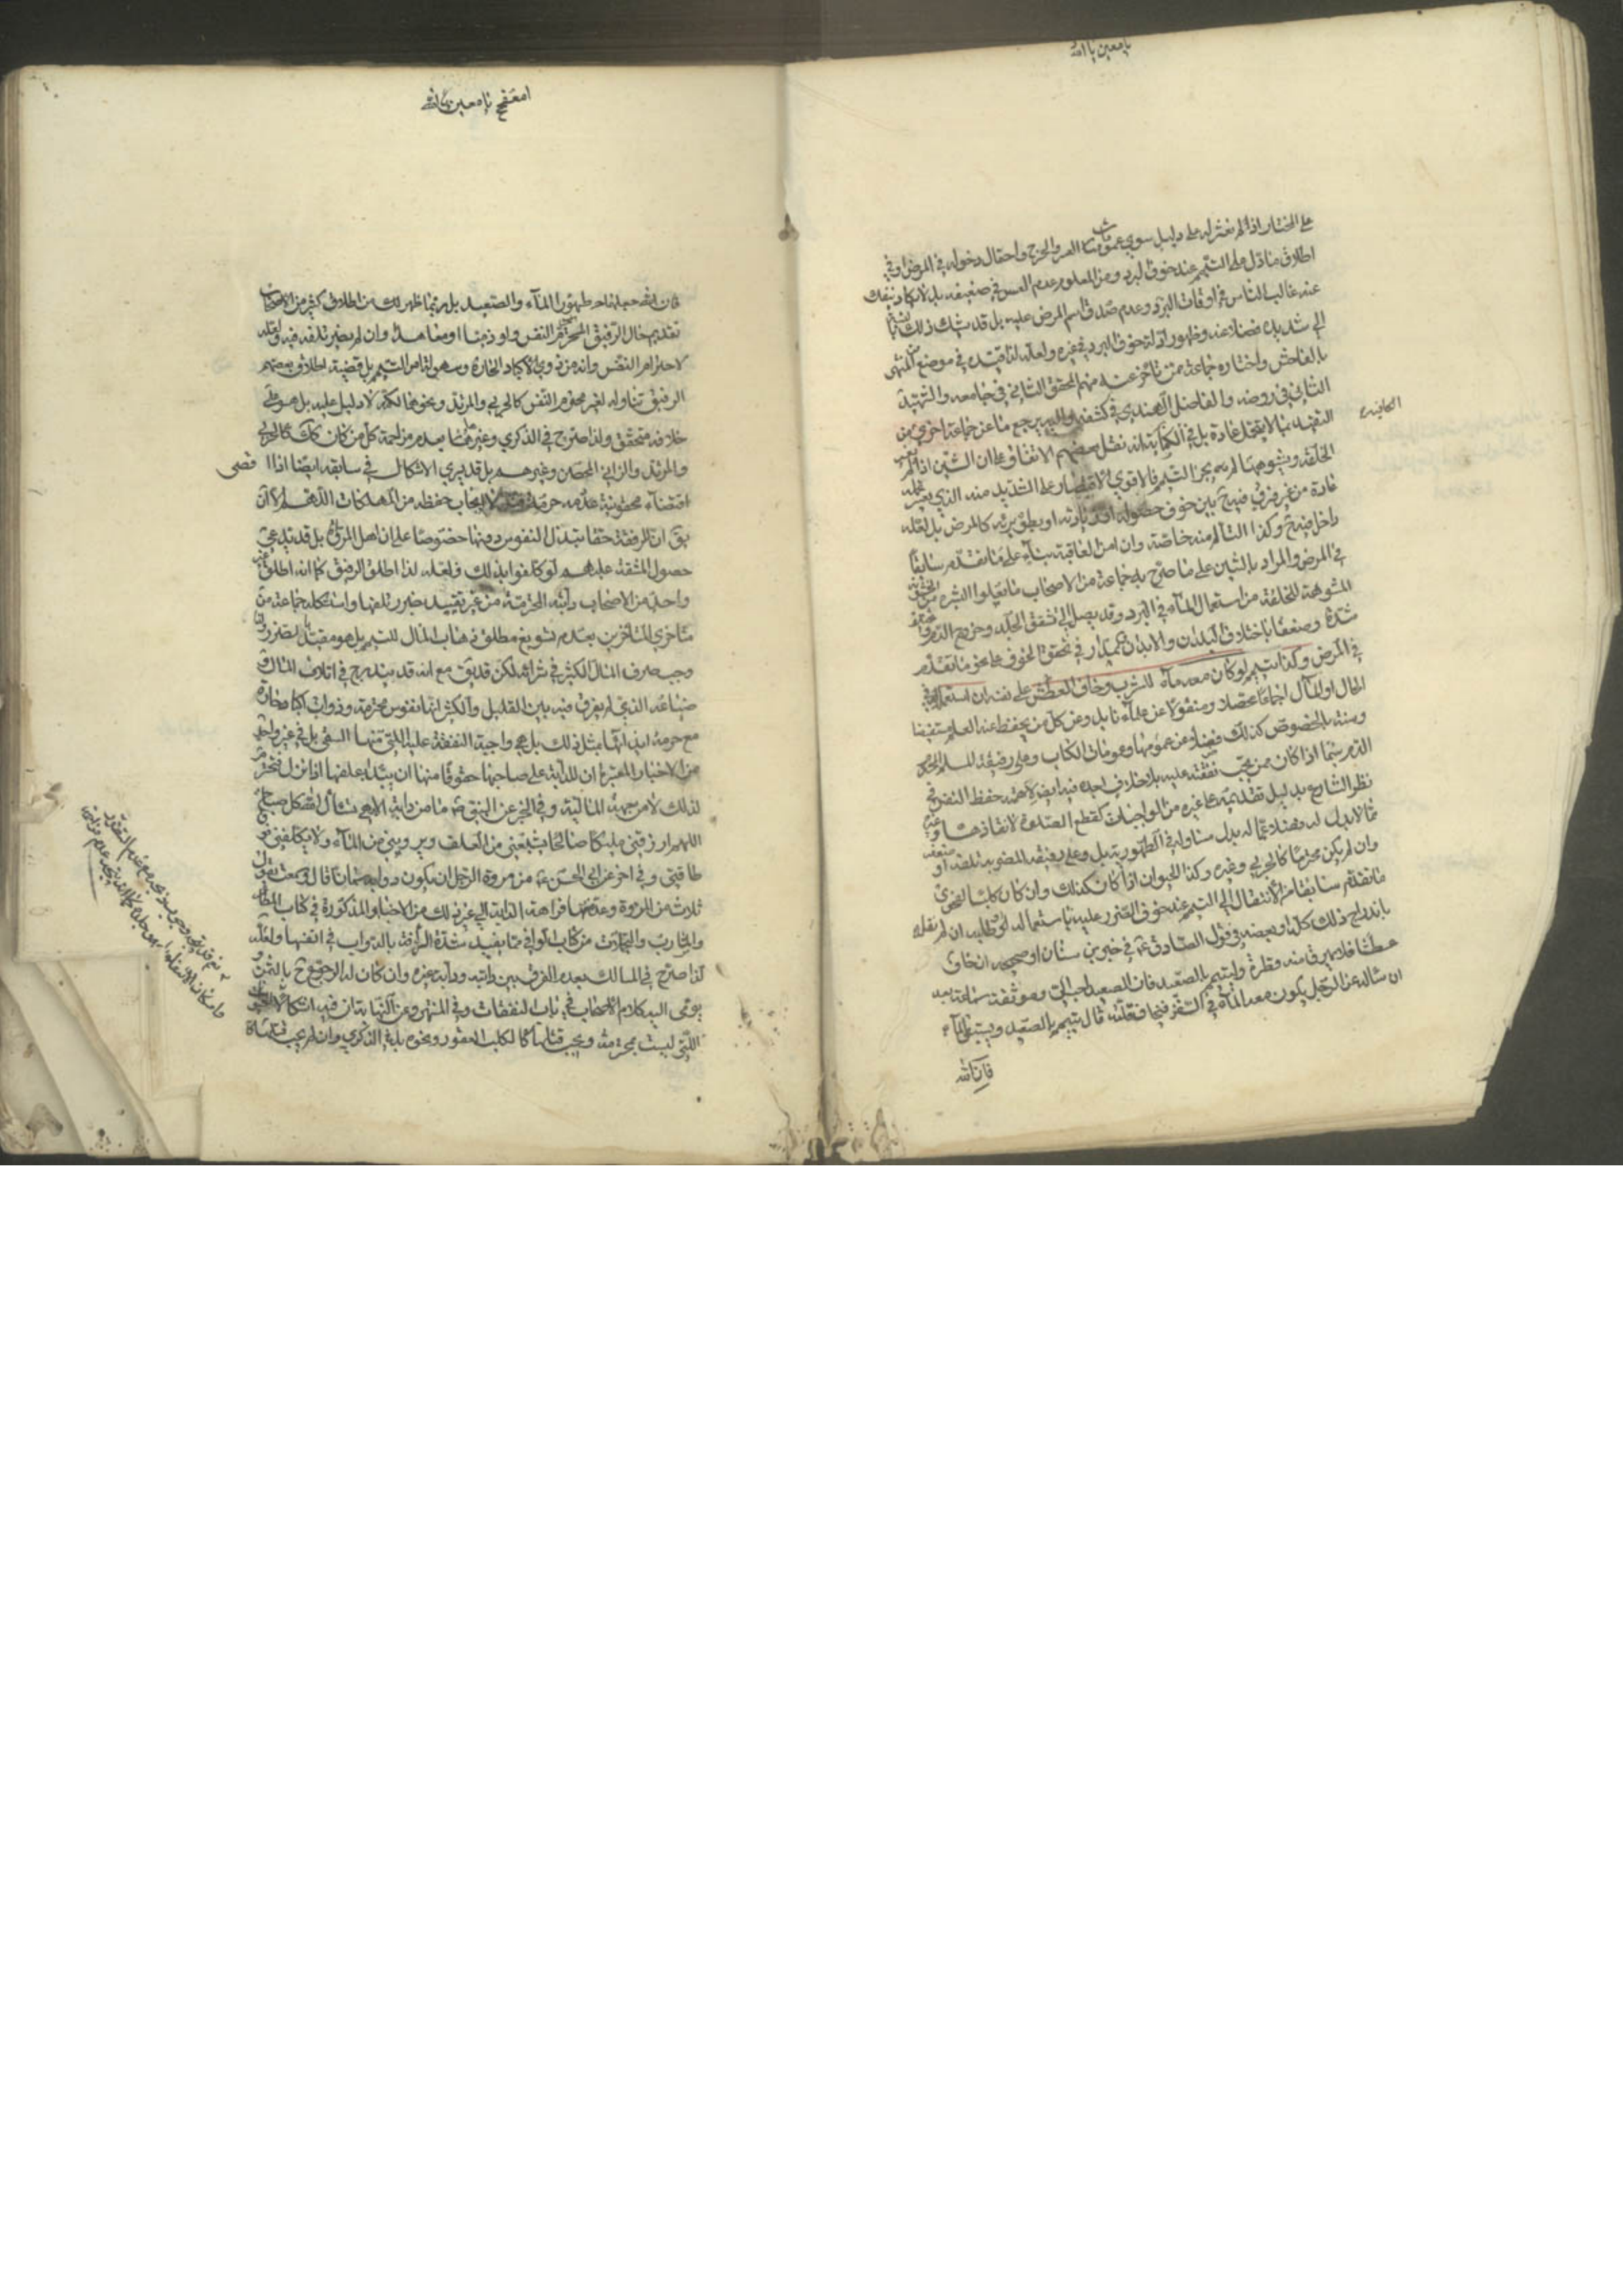 يا معين يا الله
على المختار اذا لم نعثر له على دليل سوى عمومات العسر والحرج واحتمال دخوله في المرض او في
اطلاق ما دل على التيمم عند خوف البرد ومن المعلوم عدم العسر في ضعيفه بل لا يكاد ينفك
عنه غالب الناس في اوقات البرد وعدم صدق اسم المرض عليه بل قد يشك في ذلك بالنسبة
الى شديده فضلا عنه وظهور ادلة خوف البرد في غيره ولعله لذا قيده في موضع من المنتهى
بالفاحش واختاره جماعة ممن تاخر عنه منهم المحقق الثاني في جامعه والشهيد
الثاني في روضه والفاضل الهندي في كشفه واليه يرجع ما عن جماعة اخرى من
التقييد بما لا يتحمل عادة بل في الكفاية انه نقل بعضهم الاتفاق على ان الشين اذا لم يغير
الخلقة ويشوهها لم يجز التيمم فالاقوى الاقتصار على الشديد منه الذي يعسر تحمله
عادة من غير فرق فيه ح بين خوف حصوله او زيادته او بطؤ برئه كالمرض بل لعله
داخل فيه ح وكذا التألم منه خاصة وان امن العاقبة بناء على ما تقدم سابقا
في المرض والمراد بالشين على ما صرح به جماعة من الاصحاب ما يعلوا البشرة من الخشونة
المشوهة للخلقة من استعمال الماء في البرد وقد يصل الى تشقق الجلد وخروج الدم ويختلف
شدة وضعفا باختلاف البلدان والابدان
في المرض وكذا يتيمم لو كان معه ماء للشرب وخاف العطش على نفسه ان استعمله في
الحال او المآل اجماعا محصلا ومنقولا عن علماءنا بل وعن كل من يحفظ عنه العلم مستفيضا
وسنة بالخصوص كذلك فضلا عن عمومها وعمومات الكتاب وعلى رفيقه المسلم المحترم
الدم سيما اذا كان ممن تجب نفقته عليه بلا خلاف اجده فيه ايضا لاهمية حفظ النفس في
نظر الشارع بدليل تقديمه على غيره من الواجبات كقطع الصلوة لانقاذها وغيره
مما لا بدل له فضلا عما له بدل
وان لم يكن محترما كالحربي وغيره وكذا الحيوان اذا كان كذلك وان كان كلبا
ما تقدم سابقا من الانتقال الى التيمم عند خوف الضرر عليه باستعماله او طلبه ان لم نقل
باندراج ذلك كله او بعضه في قول الصادق ع في خبر ابن سنان او صحيحه ان خاف
عطشا فلا يهرق منه قطرة وليتيمم بالصعيد فان الصعيد احب الى وموثقة سماعة بعد
ان ساله عن الرجل يكون معه الماء في السفر فيخاف قلته قال يتيمم بالصعيد ويستبقي الماء
فان الله
يا معين يا الله
فان الله جعلهما طهورا الماء والصعيد بل ربما ظهر لك من اطلاق كثير من الاصحاب
تقديم حال الرفيق المحترم النفس ولو ذميا او معاهدا وان لم يضر تلفه فيه ولعله
لاحترام النفس وانه من ذوي الاكباد الحارة وسهولة امر التيمم بل قضية اطلاق بعضهم
الرفيق تناوله لغير محترم النفس كالحربي والمرتد ونحوهما لكنه لا دليل عليه بل هو على
خلافه متحقق ولذا صرح في الذكرى وغيرها بعدم مزاحمة كل من كان كك كالحربي
والمرتد والزاني المحصن وغيرهم بل قد يسري الاشكال في سابقه ايضا اذ اقصى
اقتضاء محقونية دمه حرمة قتله لا ايجاب حفظه من المهلكات اللهم الا ان
يق ان للرفقة حقا تبذل النفوس دونها خصوصا على ان اهل المروة بل قد يدعى
حصول المشقة عليهم لو كلفوا بذلك ولعله لذا اطلق الرفيق كما انه اطلق غير
واحد من الاصحاب دابته المحترمة من غير تقييد بضرر تلفها واستشكله جماعة من
متاخري المتاخرين بعدم تسويغ مطلق ذهاب المال للتيمم بل هو مقيد بالضرر ولذا
وجب صرف المال الكثير في شرائه لكن قد يق مع انه قد يندرج في اتلاف المال و
ضياعه الذي لم يفرق فيه بين القليل والكثير انها نفوس محترمة وذوات اكباد حارة
مع حرمة ايذائها بمثل ذلك بل هي واجبة النفقة عليه التي منها السقي بل في غير واحد
من الاخبار المعتبرة ان للدابة على صاحبها حقوقا منها ان يبدأ بعلفها اذا نزل
لذلك لا من جهة المالية وفي الخبر عن النبي ص ما من دابة الا وهي تسأل الله كل صباح
اللهم ارزقني مليكا صالحا يشبعني من العلف ويرويني من الماء ولا يكلفني فوق
طاقتي وفي اخر عن ابي الحسن ع من مروة الرجل ان يكون دوابه سمانا قال وسمعته يقول
ثلاث من المروة وعد منها فراهة الدابة الى غير ذلك من الاخبار المذكورة في كتاب المطاعم
والمشارب والتجملات من كتاب الوافي مما يفيد شدة الرأفة بالدواب في انفسها ولعله
لذا صرح في المسالك بعدم الفرق بين دابته ودابة غيره وان كان له الرجوع ح بالثمن و
يومى اليه كلام الاصحاب في باب النفقات وفي المنتهى وعن النهاية ان فيه اشكالا
التي ليست بمحترمة ويجب قتلها كالكلب العقور ونحوه بل في الذكرى وان لم يجب قتله